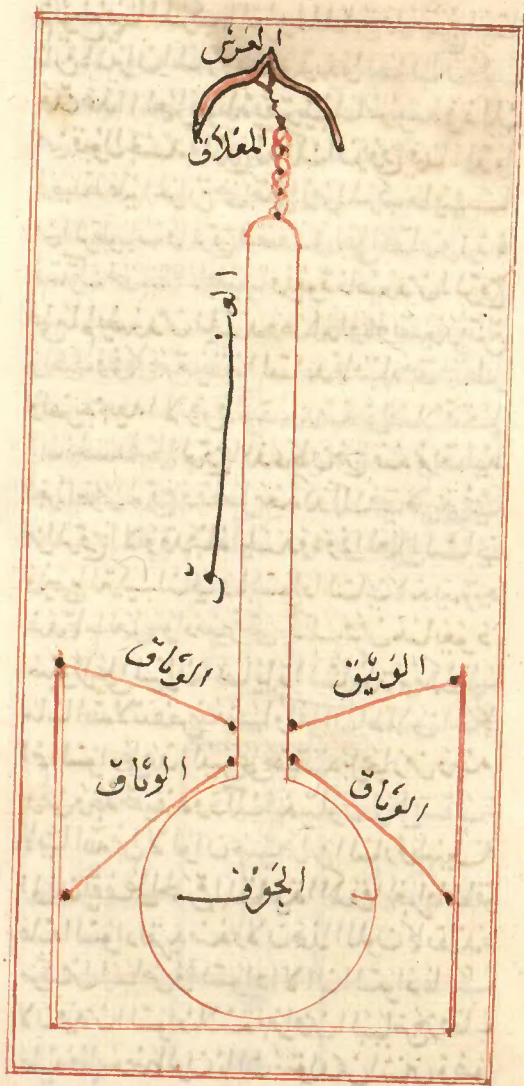 العَرْش
المعْلَاق
الوَثَاق
الوَثِيْق
الوَثَاق
الوَثَاق
الجَوْف